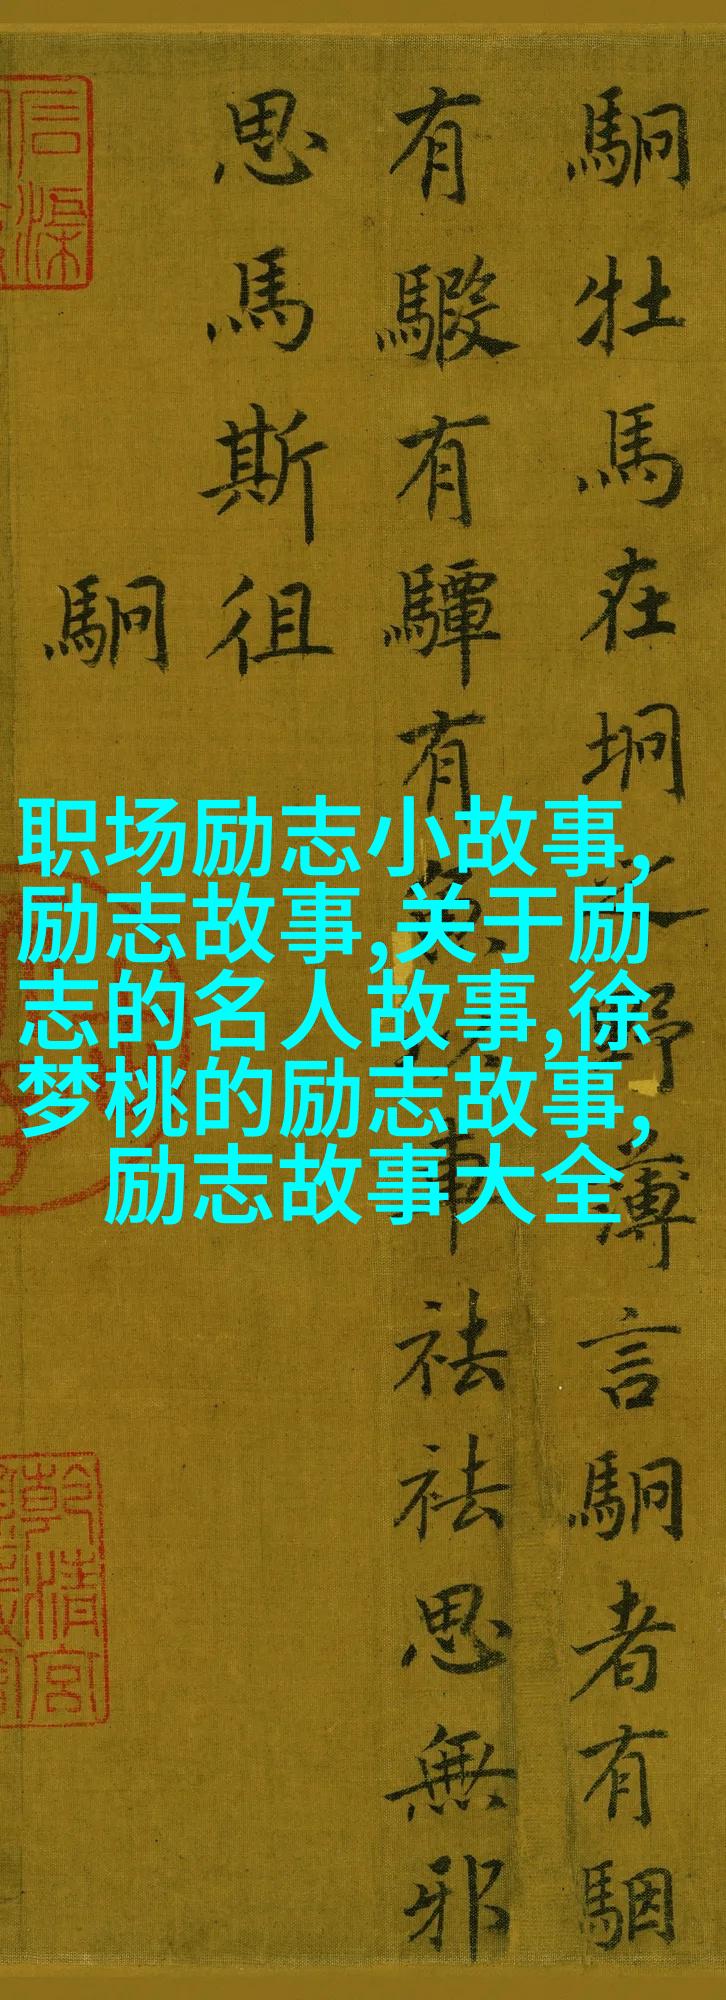 駉牡馬在坰之野薄言駉者有駰
有騢有驔有魚以車祛祛思無邪
思馬斯徂
駉
职场励志小故事,
励志故事,关于励
志的名人故事,徐
梦桃的励志故事,
励志故事大全
乾清宮